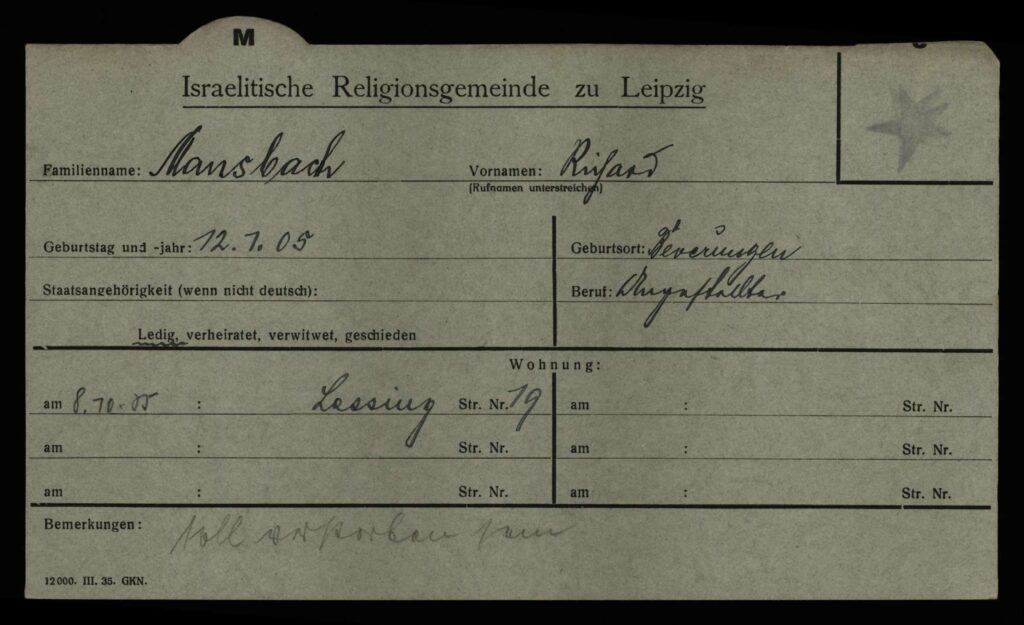 M
Israelitische Religionsgemeinde zu Leipzig
Familienname: Mansbach Vornamen: Richard
(Rufnamen unterstreichen)
Geburtstag und -jahr: 12.1.05 Geburtsort: Beverungen
Staatsangehörigkeit (wenn nicht deutsch): Beruf: Angestellter
Ledig, verheiratet, verwitwet, geschieden
Wohnung:
am 8.10.35 : Lessing Str. Nr. 19 am : Str. Nr.
am : Str. Nr. am : Str. Nr.
am : Str. Nr. am : Str. Nr.
Bemerkungen: soll verstorben sein
12000. III. 35. GKN.